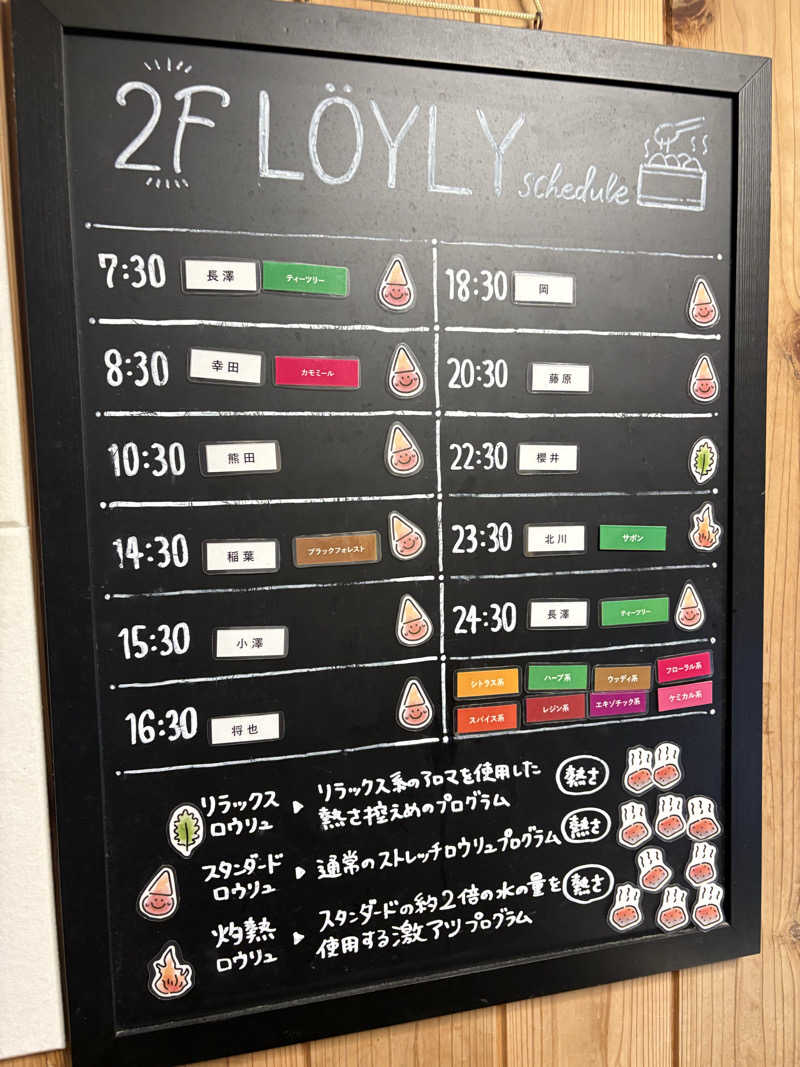 2F LÖYLY schedule
7:30 長澤 ティーツリー
8:30 幸田 カモミール
10:30 熊田
14:30 稲葉 ブラックフォレスト
15:30 小澤
16:30 将也
18:30 岡
20:30 藤原
22:30 櫻井
23:30 北川 サボン
24:30 長澤 ティーツリー
シトラス系 ハーブ系 ウッディ系 フローラル系
スパイス系 レジン系 エキゾチック系 ケミカル系
リラックス
ロウリュ
リラックス系のアロマを使用した
熱さ控えめのプログラム
熱さ
スタンダード
ロウリュ
通常のストレッチロウリュプログラム
熱さ
灼熱
ロウリュ
スタンダードの約2倍の水の量を
使用する激アツプログラム
熱さ